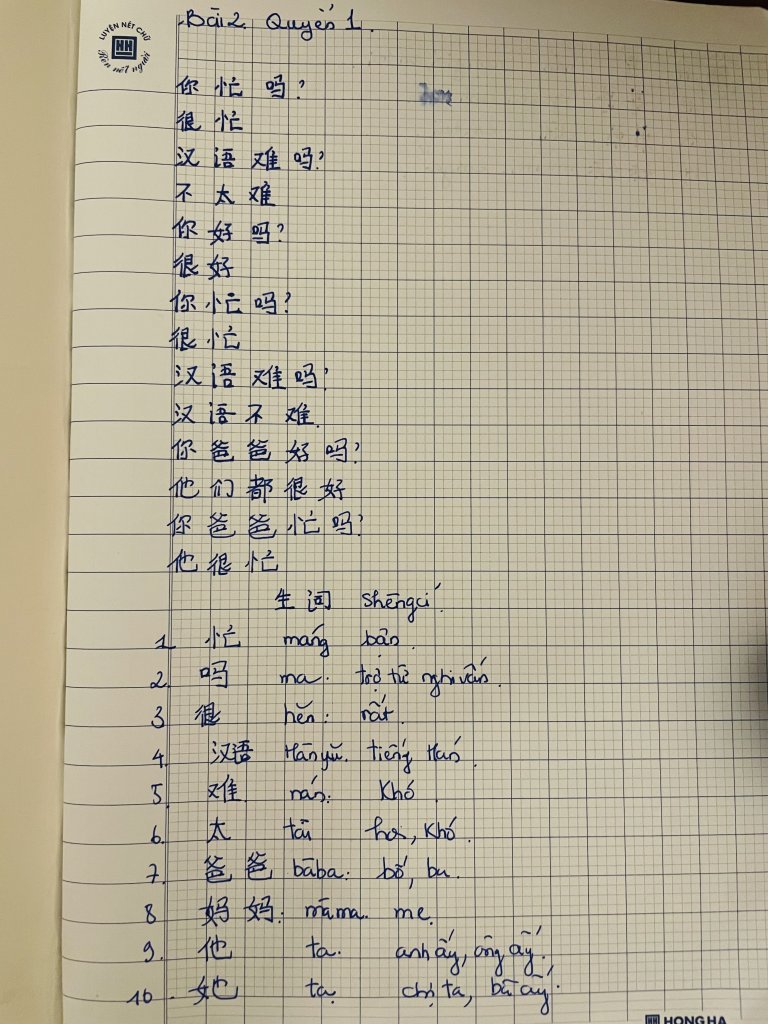 LUYỆN NÉT CHỮ
HH
Rèn nết người
Bài 2. Quyển 1.
你 忙 吗?
很 忙
汉 语 难 吗?
不 太 难
你 好 吗?
很 好
你 忙 吗?
很 忙
汉 语 难 吗?
汉 语 不 难.
你 爸 爸 好 吗?
他 们 都 很 好
你 爸 爸 忙 吗?
他 很 忙
生 词 Shēngcí.
1. 忙 máng bận.
2. 吗 ma. trợ từ nghi vấn.
3 很 hěn: rất.
4. 汉语 Hānyǔ. tiếng Hán.
5. 难. nán: Khó.
6. 太 tài hơi, khó.
7. 爸 爸 bāba: bố, ba.
8 妈 妈. māma. mẹ.
9. 他 ta. anh ấy, ông ấy.
10. 她 ta. chị ta, bà ấy.
HH HONG HA